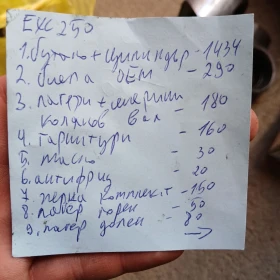 EXC 250
1. бутало + цилиндър - 1434
2. биела OEM - 290
3. лагери + семеринги
колянов вал - 180
4. гарнитури - 160
5. масло - 30
6. антифриз - 20
7. перка комплект - 150
8. лагер горен - 50
9. лагер долен - 80
→